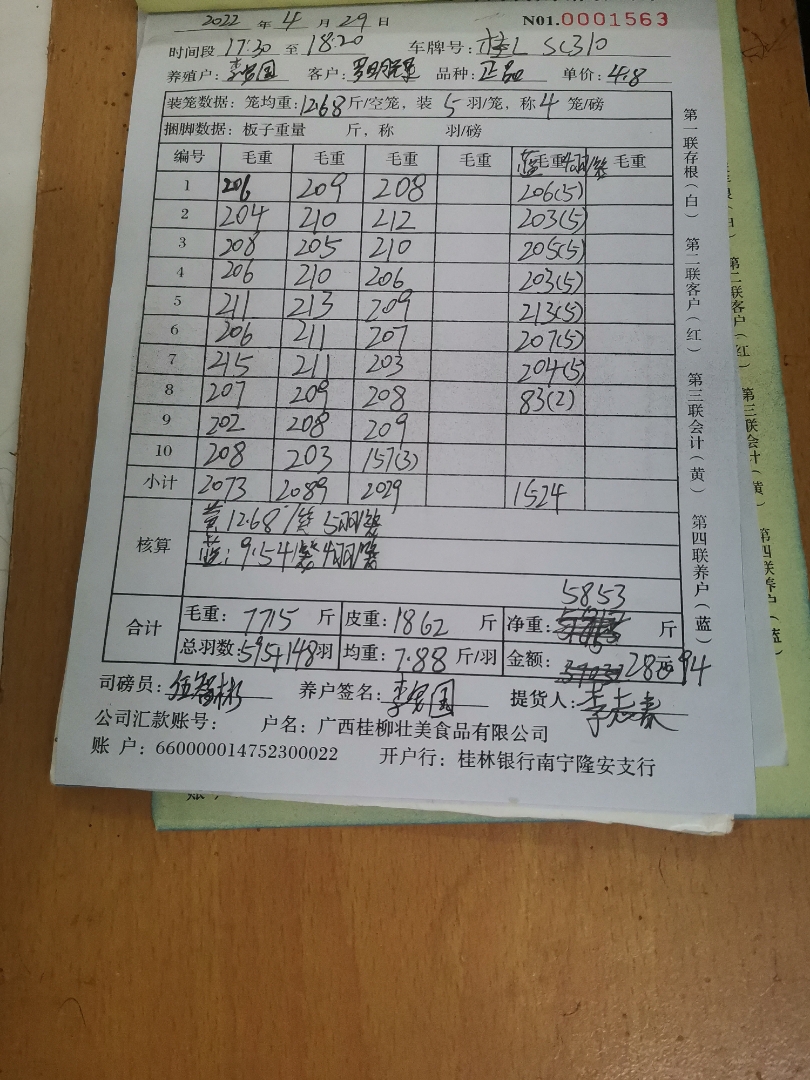 2022 年 4 月 29 日 N01.0001563
时间段 17:30 至 18:20 车牌号: 桂L SC310
养殖户: 李 国 客户: 品种: 正品 单价: 4.8
装笼数据: 笼均重: 12.68 斤/空笼, 装 5 羽/笼, 称 4 笼/磅
捆脚数据: 板子重量 斤, 称 羽/磅
编号 毛重 毛重 毛重 毛重 蓝 毛重 4羽/笼 毛重
1 206 209 208 206(5)
2 204 210 212 203(5)
3 208 205 210 205(5)
4 206 210 206 203(5)
5 211 213 209 213(5)
6 206 211 207 207(5)
7 215 211 203 204(5)
8 207 209 208 83(2)
9 202 208 209
10 208 203 157(3)
小计 2073 2089 2029 1524
核算 黄12.68/笼 5羽/笼
蓝: 9.54/笼 4羽/笼
5853
合计 毛重: 7715 斤 皮重: 1862 斤 净重: 斤
总羽数: 595+148羽 均重: 7.88 斤/羽 金额: 28094
司磅员: 伍智彬 养户签名: 李 国 提货人: 李志春
公司汇款账号: 户名: 广西桂柳壮美食品有限公司
账 户: 660000014752300022 开户行: 桂林银行南宁隆安支行
第一联存根(白) 第二联客户(红) 第三联会计(黄) 第四联养户(蓝)
第二联客户(红) 第三联会计(黄) 第四联养户(蓝)